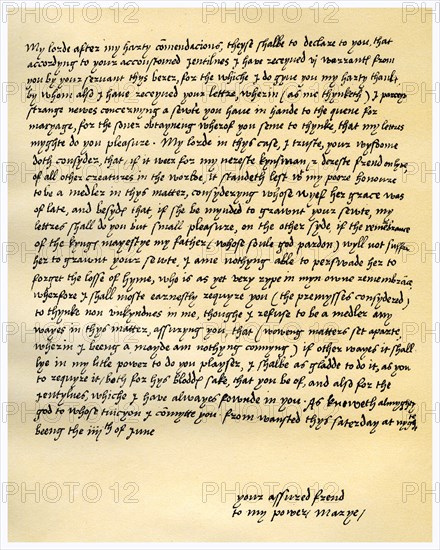 My lorde after my harty comendacions, theyse shalbe to declare to you, that
accordyng to your accustomed jentilnes I have receyved vj warrants from
you by your servant thys berer, for the whiche I do gyve you my harty thanks,
by whom also I have receyved your lettre, wherin (as me thynketh) I perceyve
strange newes concernyng a sewte you have in hande to the quene for
maryage, for the soner obtaynyng wherof you seme to thynke, that my letters
myghte do you pleasure. My lorde in thys case, I truste, your wysdome
doth consyder, that, if it wer for my nereste kynsman, & dereste frend on lyve,
of all other creatures in the worlde, it standeth lest wt my poore honoure
to be a medler in thys matter, consyderyng whose wyef her grace was
of late, and besyds that if she be mynded to grawnt your sewte, my
lettres shall do you but small pleasure, on the other syde if the remembrance
of the kyngs mayestye my father (whose soule god pardon) wyll not suffre
her to grawnt your sewte, I ame nothyng able to perswade her to
forget the losse of hyme, who is as yet very rype in myn owne remembrāce
wherfore I shall moste earnestly requyre you (the premysses consyderyd)
to thynke non unkyndnes in me, thoughe I refuse to be a medler any
wayes in thys matter, assuryng you, that (woweng matters set aparte,
wherin I beeng a mayde am nothyng connyng) if other wayes it shall
lye in my litle power to do you playser, I shalbe as gladde to do it, as you
to requyre it, both for hys blodds sake, that you be of, and also for the
jentylnes, whiche I have allwayes fownde in you. As knoweth almyghty
god to whose tuicyon I comytte you. from wansted thys saterday at nyght
beeng the iiijth of June
PHOTO 12
your assured frend
to my power, Marye